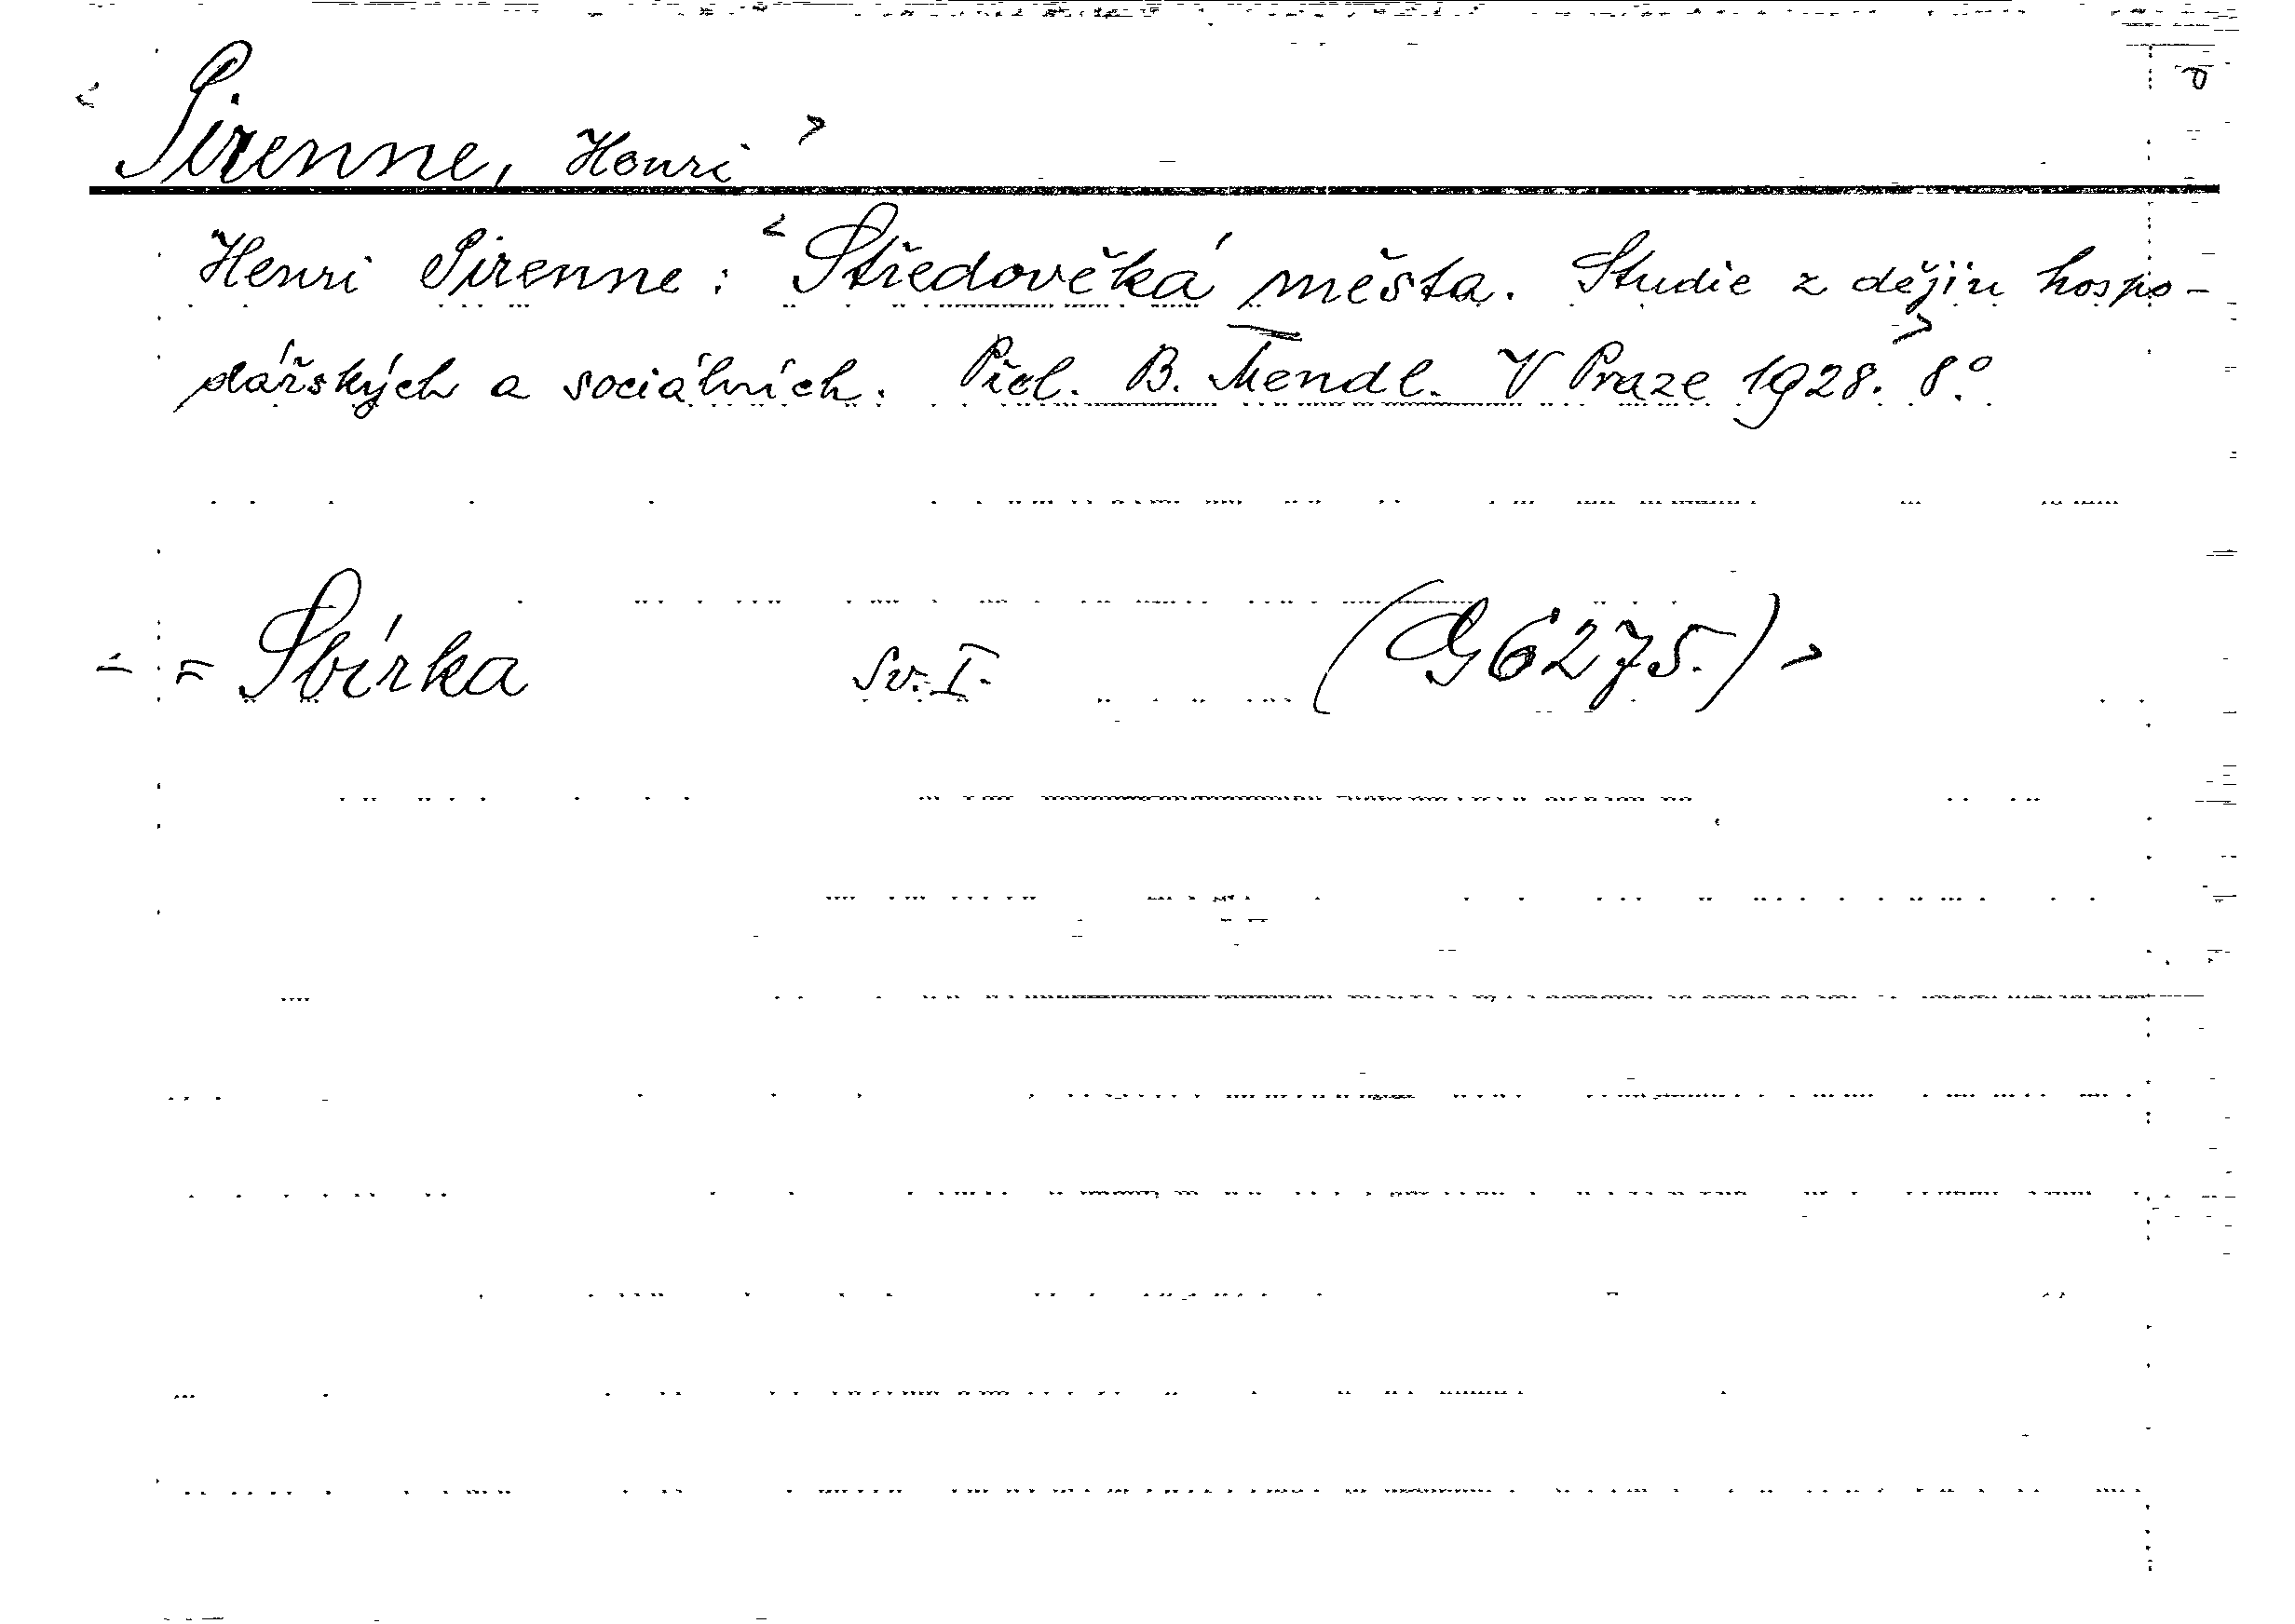 < Pirenne, Henri >
Henri Pirenne: < Středověká města. Studie z dějin hospo-
dářských a sociálních. Přel. B. Mendl. V Praze 1928. > 8°.
- = Sbírka Sv. I. (G 6275.) >